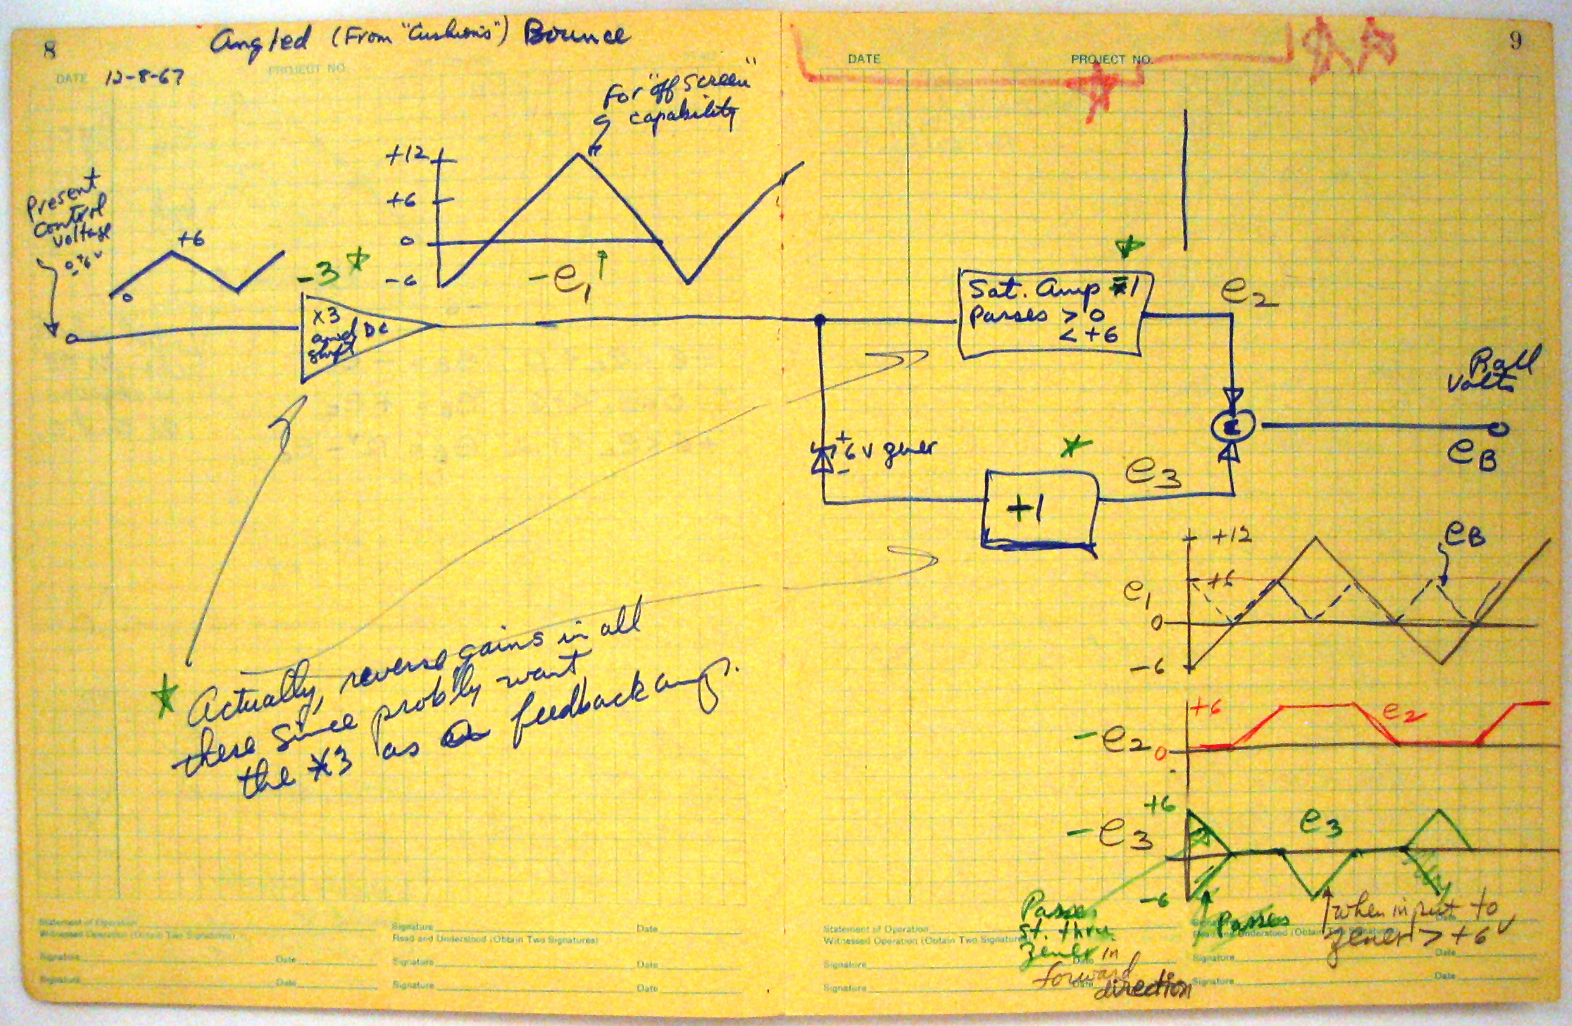 8
Angled (From "Cushions") Bounce
DATE 12-8-67
PROJECT NO.
For "off screen"
capability
+12
+6
0
-6
Present
control
voltage
+6
0
-3 ★
-e₁
x3
and DC
shift
★ Actually, reverse gains in all
these since prob'ly want
the x3 as a feedback amp.
Statement of Operation
Witnessed Operation (Obtain Two Signatures)
Signature Date
Signature Date
Signature Date
Read and Understood (Obtain Two Signatures)
Signature Date
Signature Date
9
DATE
PROJECT NO.
Sat. Amp
Passes > 0
< +6
e₂
+
6 v zener
-
+1
e₃
Ball
Volts
eB
+12
eB
+6
e₁
0
-6
+6
e₂
-e₂
0
+6
e₃
-e₃
-6
Passes
st. thru
zener in
forward
direction
Passes
when input to
zener > +6V
Statement of Operation
Witnessed Operation (Obtain Two Signatures)
Signature Date
Signature Date
Signature Date
Signature Date
Signature Date